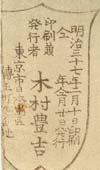 明治三十七年二月十日印刷
仝年仝月廿日發行
印刷兼
發行者
木村豊吉
東京市日本橋區